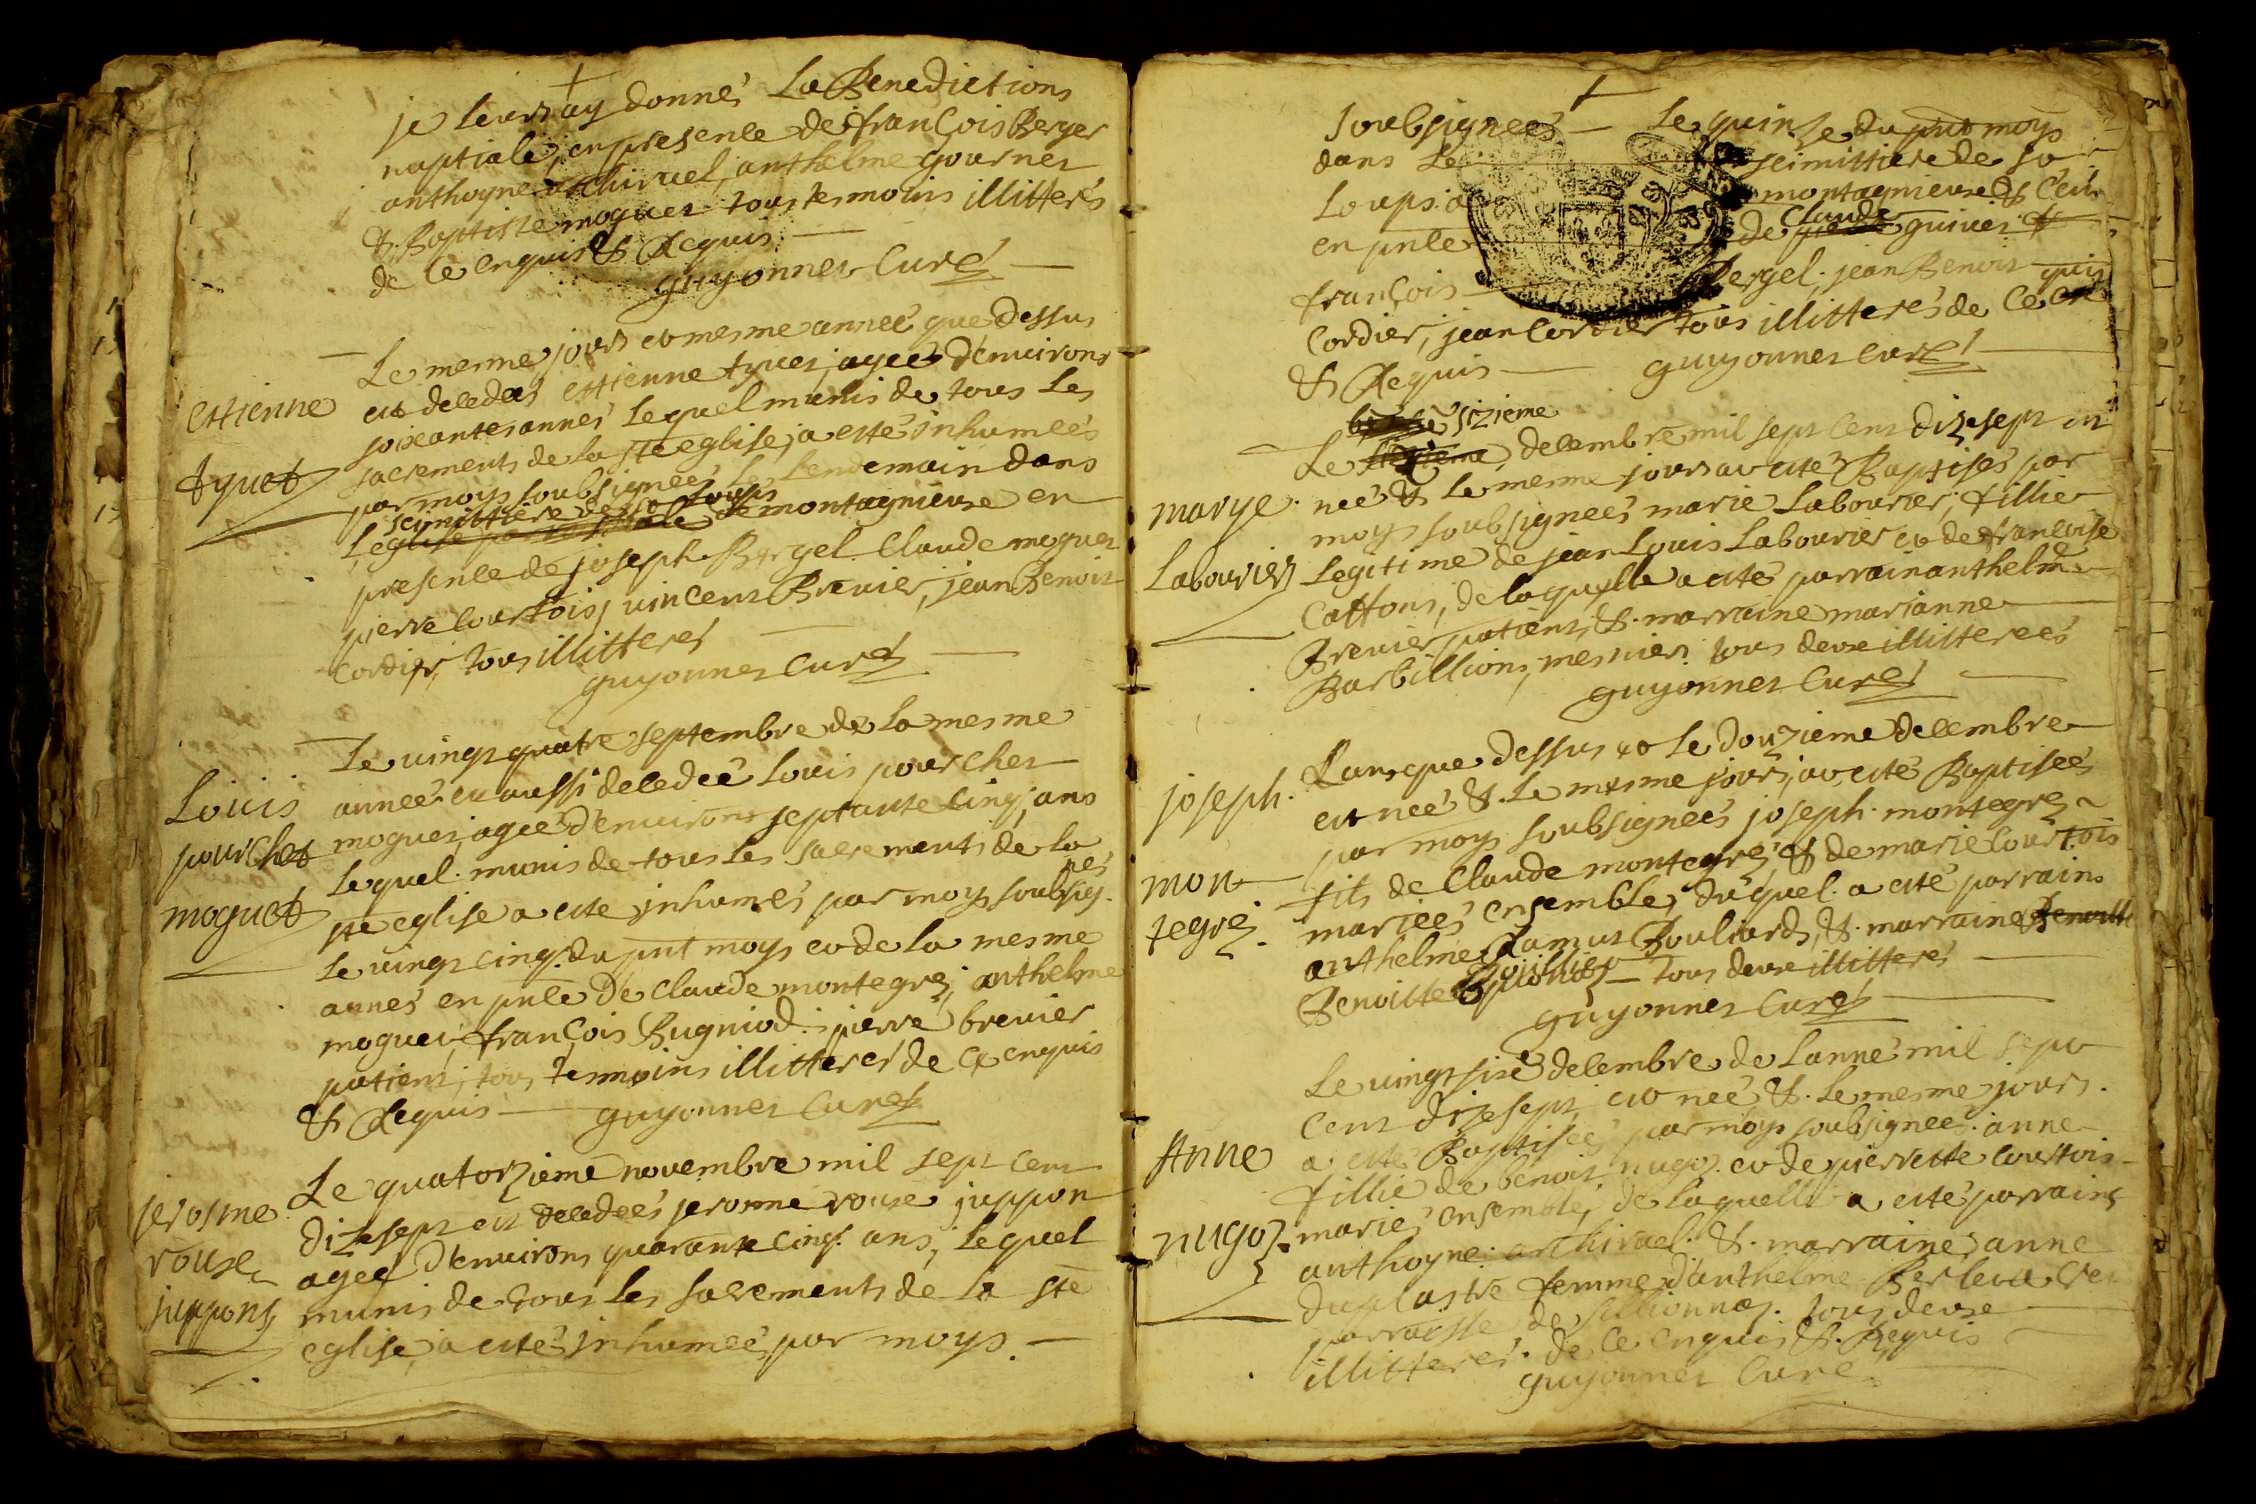 je leurs ay donnés La Benedictions
nuptiale, en presence de françois Berger
anthoyne anthelme gournet
& Baptiste moguet tous tesmoins illitterés
de ce enquis & Requis
guyonnet Curé
Le mesme jours et mesme année que dessus
est decedes estienne tyuet, agée d'environs
soixantes années Lequel munis de tous Les
sacrements de la ste eglise, a esté inhumées
par moys soubsignée Le Lendemain dans
seimittiere de so Loups
L'eglise de montagnieuse en
presence de joseph Bergel Claude moguet
pierre Courtois, vincent Brevier, jean Benoit
Cordier, tous illitteres
guyonnet Curé
estienne
tyuet
Le vingt quatre septembre de La mesme
année est aussi decedée Louis pourchet
moguet, agée d'environs septante cinq, ans
Lequel munis de tous les sacrements de la
ste eglise a esté inhumés par moys soubsig-
nés
Le vingt cinq. du pnt moys et de la mesme
année en pnce de Claude montegrez, anthelme
moguet, françois Bugniod. pierre brevier
patient, tous tesmoins illitteres de ce enquis
& Requis guyonnet Curé
Louis
pourchet
moguet
Le quatorzieme novembre mil sept cent
dizesept est decedées jerosme rouse juppon
agée d'environs quarante cinq. ans, Lequel
munis de tous Les sacrements de la ste
eglise, a estés inhumée par moys
jerosme
rouse
juppons
soubsignées Le quinse du pnt moys
dans Le seimittiere de so
Loups a montagnieuse & Ceci
en pnce de Claude guivet &
françois Bergel, jean Benoit
Cordier, jean Cordier tous illitteres de Ce enquis
& Requis guyonnet Curé
sizieme
Le decembre mil sept Cent dizesept est
née & Le mesme jours at estés Baptisés par
moys soubsignées marie Labourier, fillie
Legitime de jean Louis Labourier et de francoise
Cattons, de laquelle a esté parrain anthelme
Brevier patient, & marraine marianne
Barbillions, mesnier. tous deuse illitterées
guyonnet Curé
marye
Labourier
L'ans que dessus et Le douzieme decembre
est née & Le mesme jours, at esté Baptisées
par moys soubsignées joseph montegrez
fils de Claude montegrez & de marie Courtois
mariées ensemble, duquel a esté parrains
anthelme Camus Bouliard, & marraine
Benoitte tous deuse illitterés
guyonnet Curé
joseph
mon
tegrez
Le vingt sixe decembre de L'année mil sept
Cent dizesept, est née & Le mesme jours
a esté Baptisées par moys soubsignées anne
fillie de benoit nugoz et de pierrette Courtois
mariés ensemble, de laquelle a esté parrains
anthoyne & marraine, anne
duplastre femme d'anthelme
parroesse de sillionnas. tous deuse
illitterés. de ce enquis & Requis
guyonnet Curé
Anne
nugoz